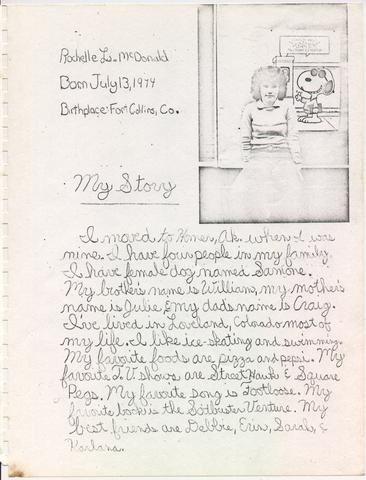 Rochelle L. McDonald
Born July 13, 1974
Birthplace: Fort Collins, Co.
My Story
I moved to Homer, Ak. when I was
nine. I have four people in my family.
I have female dog named Samone.
My brother's name is William, my mother's
name is Julie, & my dad's name is Craig.
I've lived in Loveland, Colorado most of
my life. I like ice-skating and swimming.
My favorite foods are pizza and pepsi. My
favorite T.V. shows are Street Hawk & Square
Pegs. My favorite song is Footloose. My
favorite book is the Venture. My
best friends are Debbie, Erin, Sarah, &
Karlana.